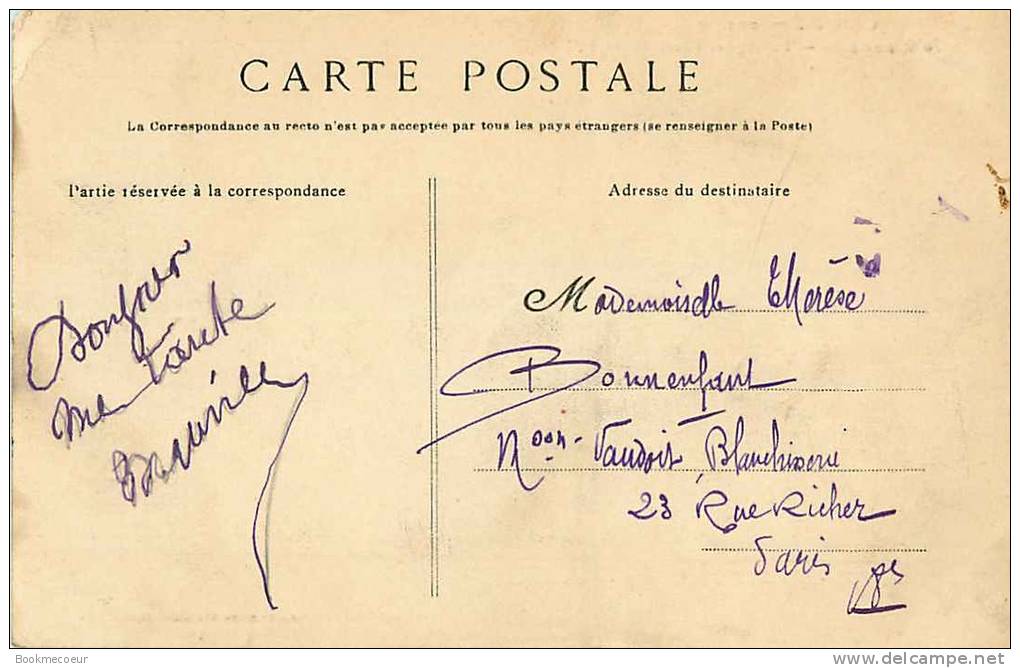 CARTE POSTALE
La Correspondance au recto n'est pas acceptée par tous les pays étrangers (se renseigner à la Poste)
Partie réservée à la correspondance
Bonjour
ma tante
Adresse du destinataire
Mademoiselle Thérèse
Bonnenfant
Mson Vaudoit, Blanchisserie
23 Rue Richer
Paris
Bookmecoeur
www.delcampe.net